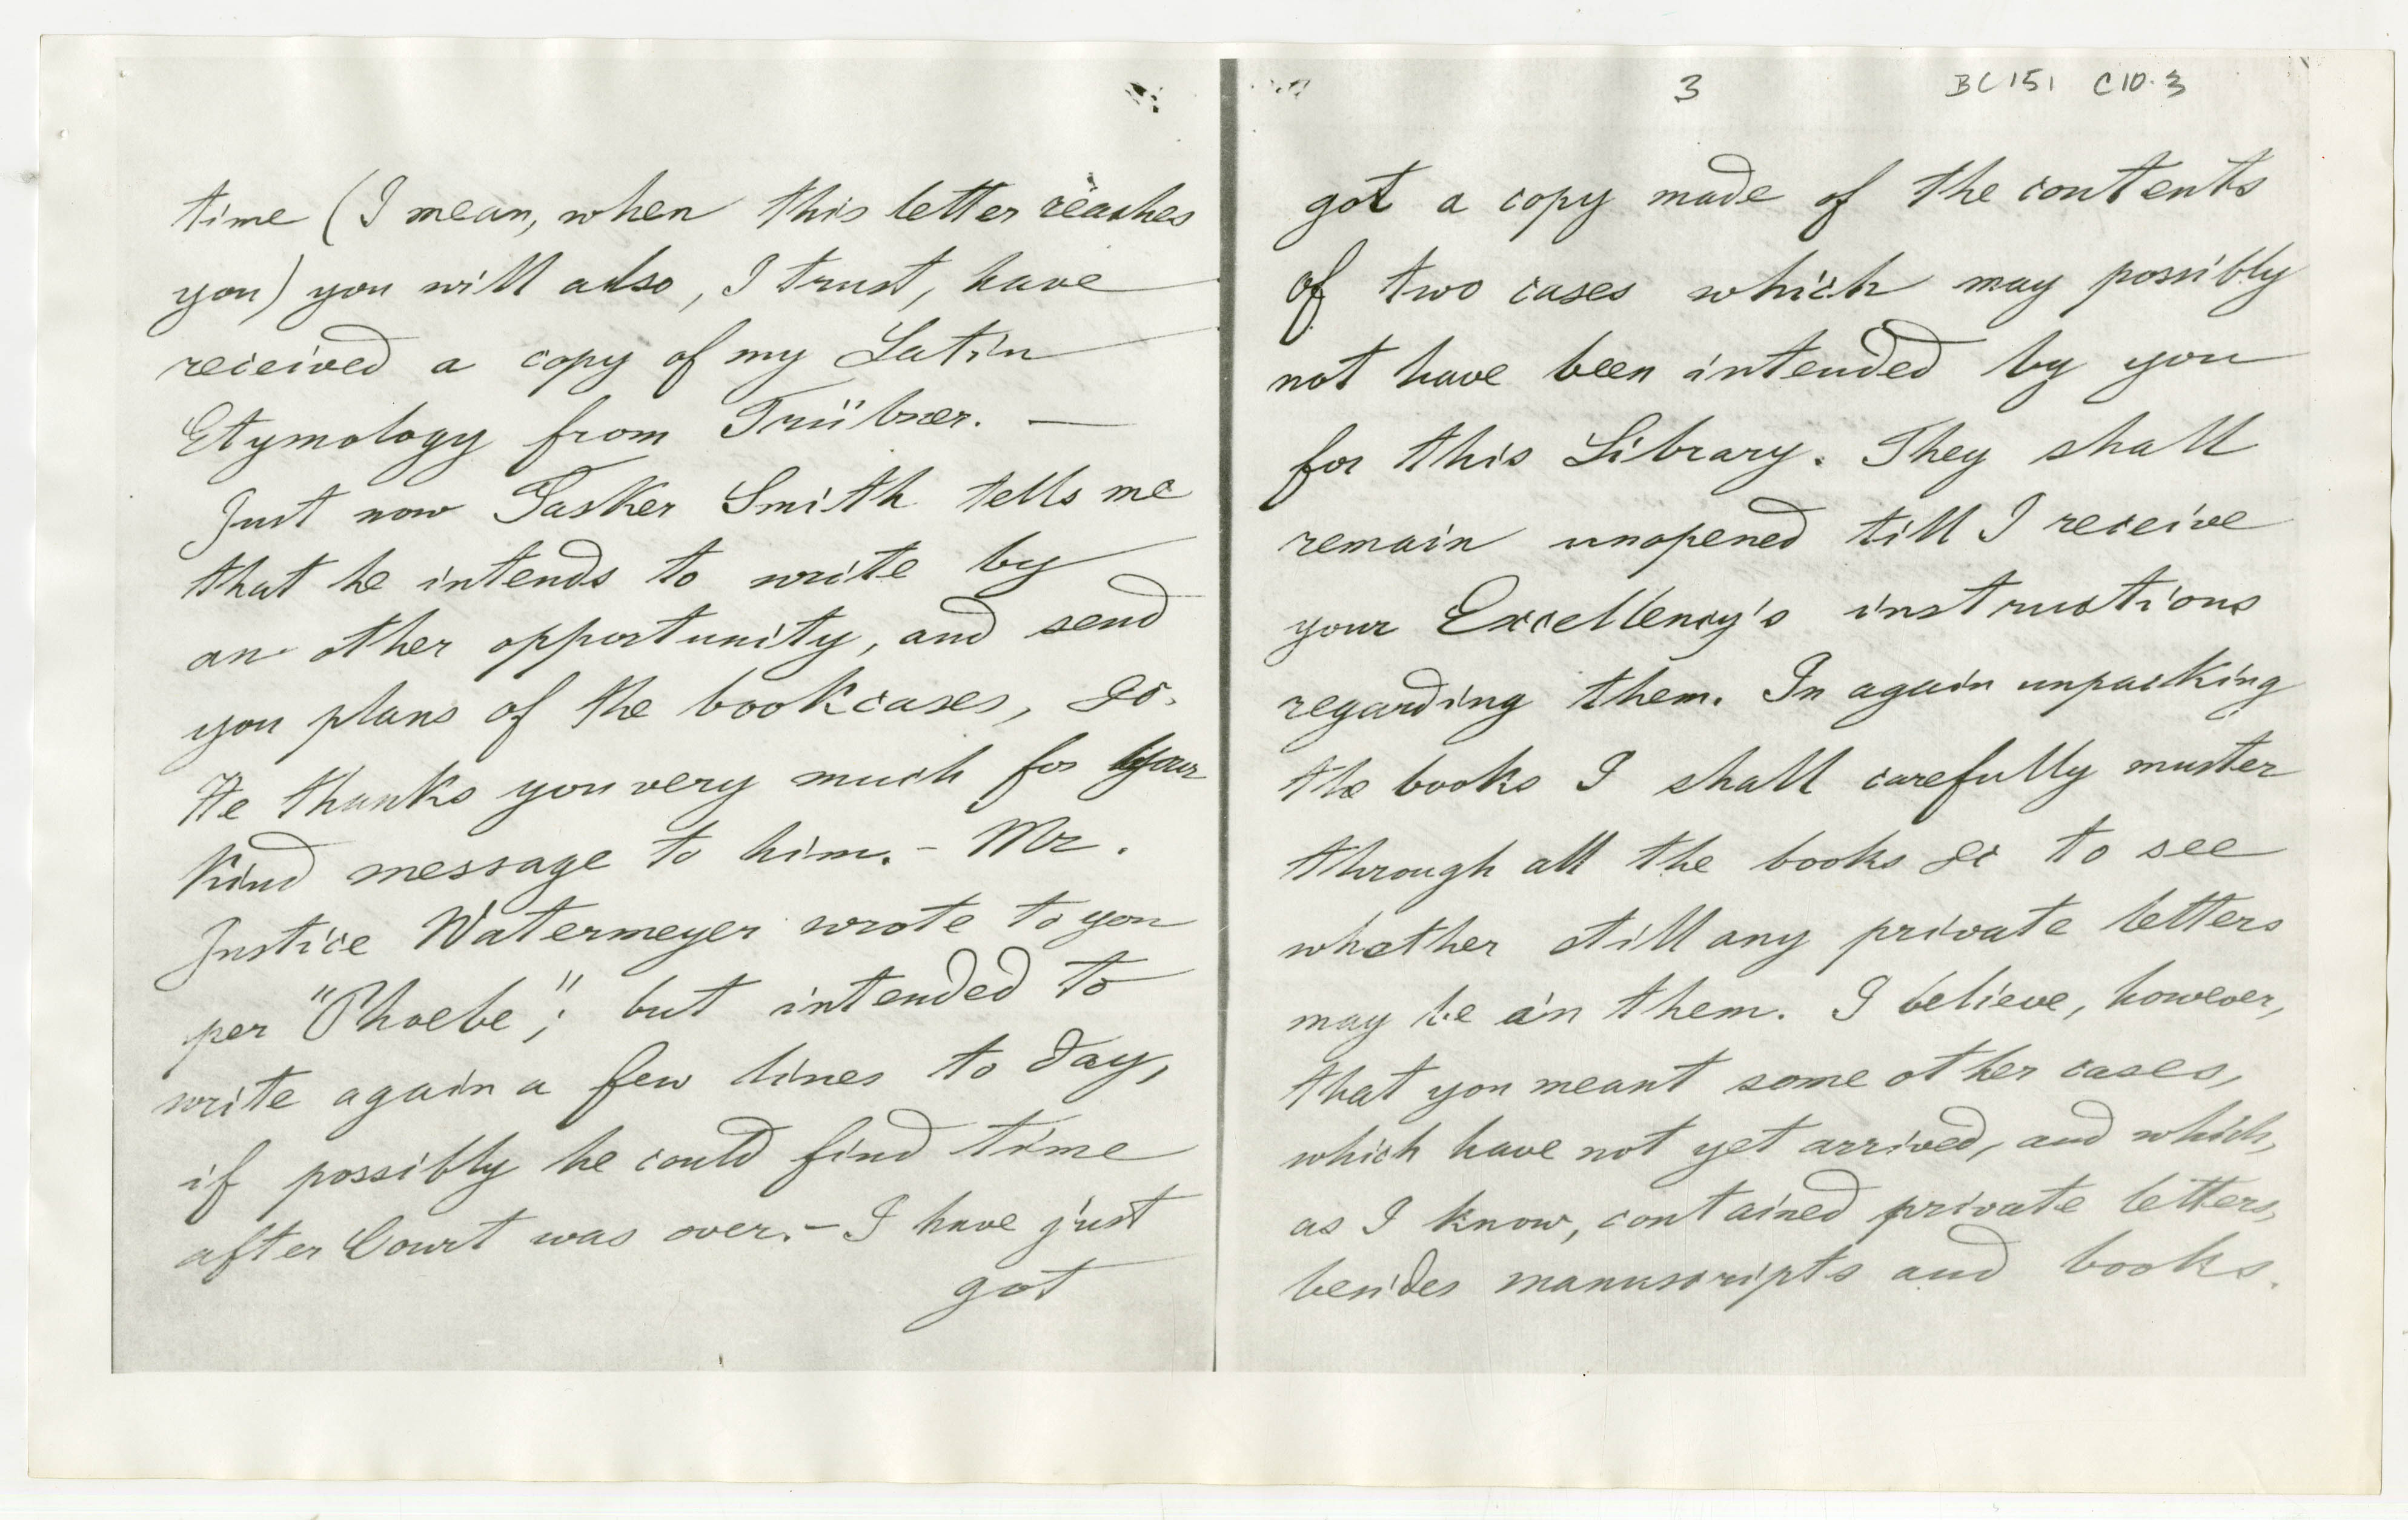 time (I mean, when this letter reaches
you) you will also, I trust, have
received a copy of my Latin
Etymology from Trübner. —
Just now Tasker Smith tells me
that he intends to write by
an other opportunity, and send
you plans of the bookcases, &c.
He thanks you very much for your
kind message to him. - Mr.
Justice Watermeyer wrote to you
per "Phoebe"; but intended to
write again a few lines to day,
if possibly he could find time
after Court was over. - I have just
got
3 BC 151 C10.3
got a copy made of the contents
of two cases which may possibly
not have been intended by you
for this Library. They shall
remain unopened till I receive
your Excellency's instructions
regarding them. In again unpacking
the books I shall carefully muster
through all the books &c to see
whether still any private letters
may be in them. I believe, however,
that you meant some other cases,
which have not yet arrived, and which,
as I know, contained private letters,
besides manuscripts and books.